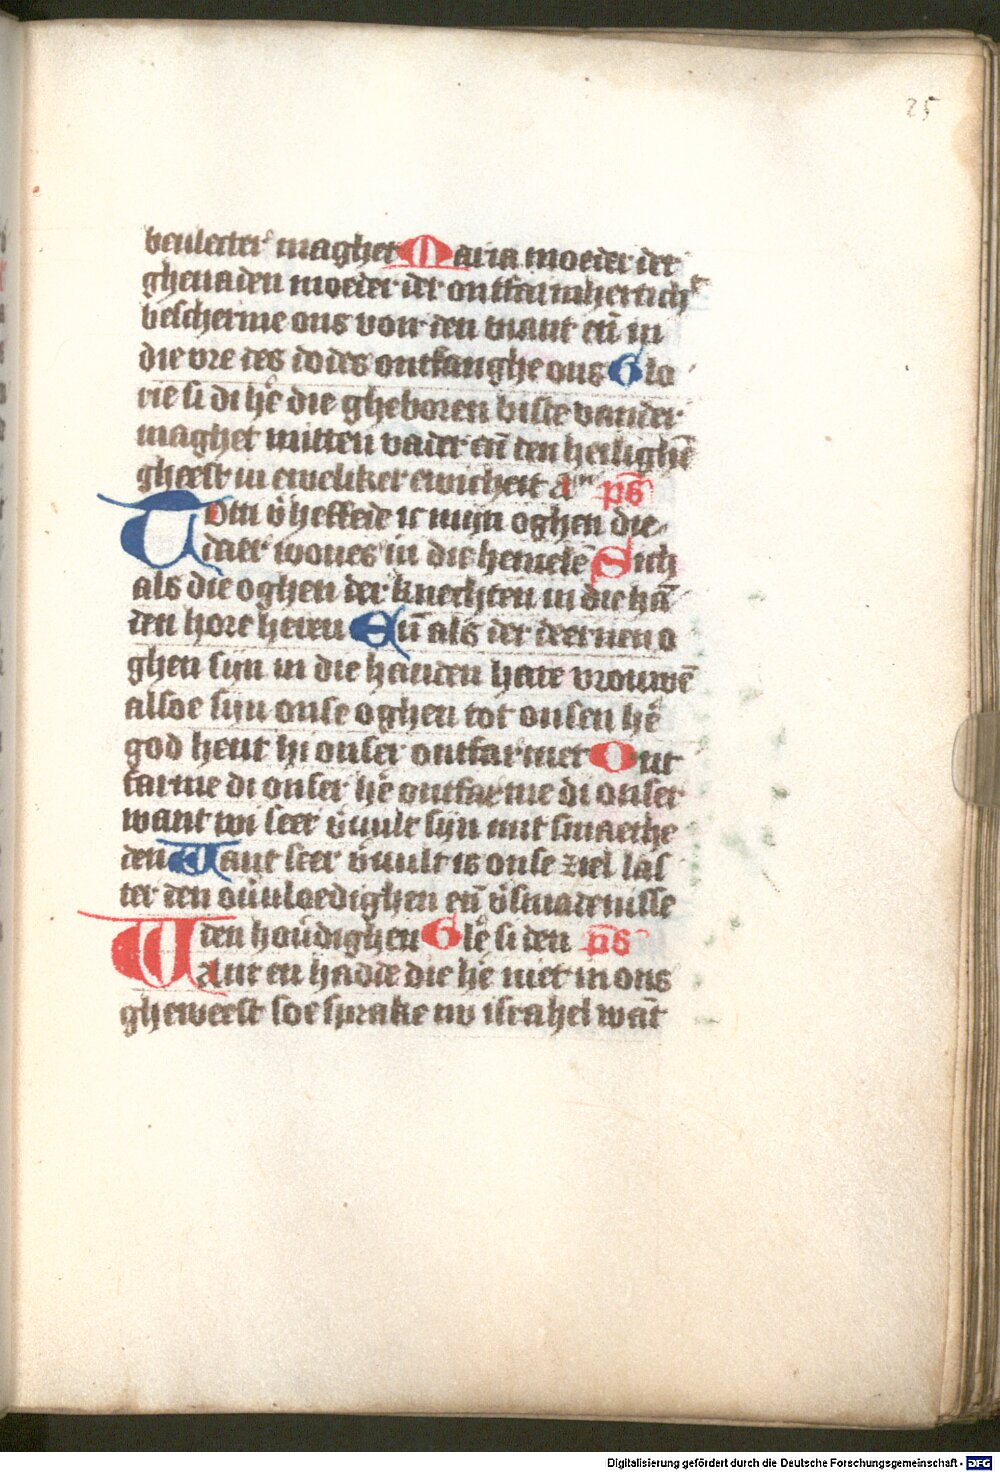 25
bevlecter maghet Maria moeder der
ghenaden moeder der ontfarmhertich
bescherme ons von den viant eñ in
die vre des dodes ontfanghe ons Glo
rie si di hē die gheboren biste vander
maghet mitten vader eñ den heilighē
gheest in eweliker ewicheit a p̄s
Tottti v̄heffede ic mijn oghen die
daer wones in die hemelē Sich
als die oghen der knechten in die hā
den hore heren Eñ als der deernen o
ghen sijn in die handen hare vrouwē
alsoe sijn onse oghen tot onsen hē
god hent hi onser ontfarmet Ont
farme di onser hē ontfarme di onser
want wi seer v̄vult sijn mit smaethe
den Want seer v̄vult is onse ziel las
ter den ouv̄loedighen eñ v̄smadenisse
den houv̄dighen Glē si den p̄s
Want en hadde die hē niet in ons
gheweest soe sprake nv israhel wāt
Digitalisierung gefördert durch die Deutsche Forschungsgemeinschaft - DFG